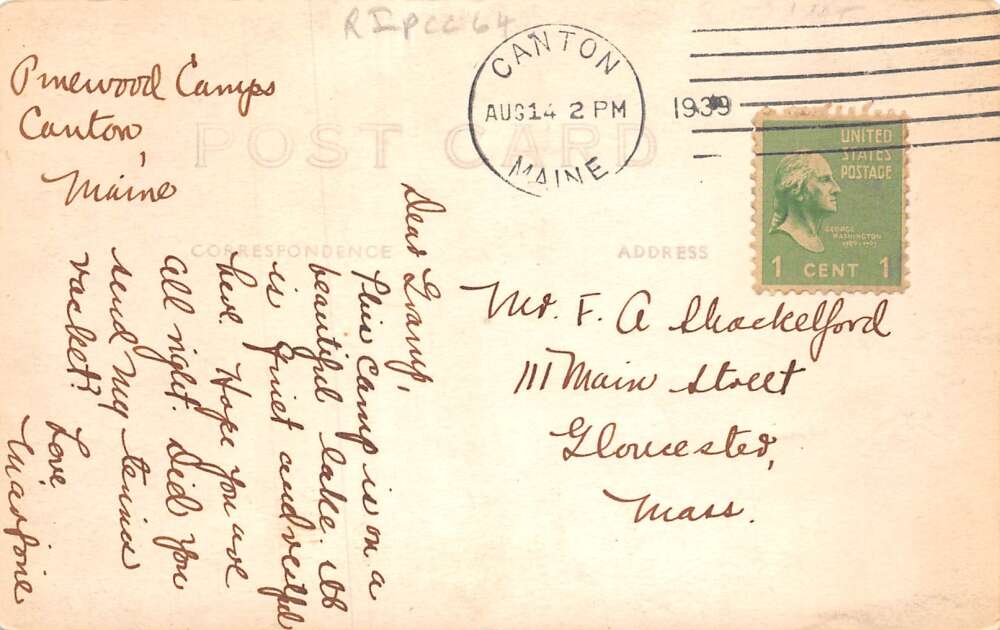 RIPCC64
CANTON
AUG14 2 PM
MAINE
1939
UNITED
STATES
POSTAGE
GEORGE
WASHINGTON
1 CENT 1
POST CARD
CORRESPONDENCE
ADDRESS
Pinewood Camps
Canton,
Maine
Dear Gramp,
This camp is on a
beautiful lake. Its
is quiet and restful
here. Hope you are
all right. Did you
send my tennis
racket?
Love
Mr. F. A Shackelford
111 Main Street
Gloucester,
Mass.